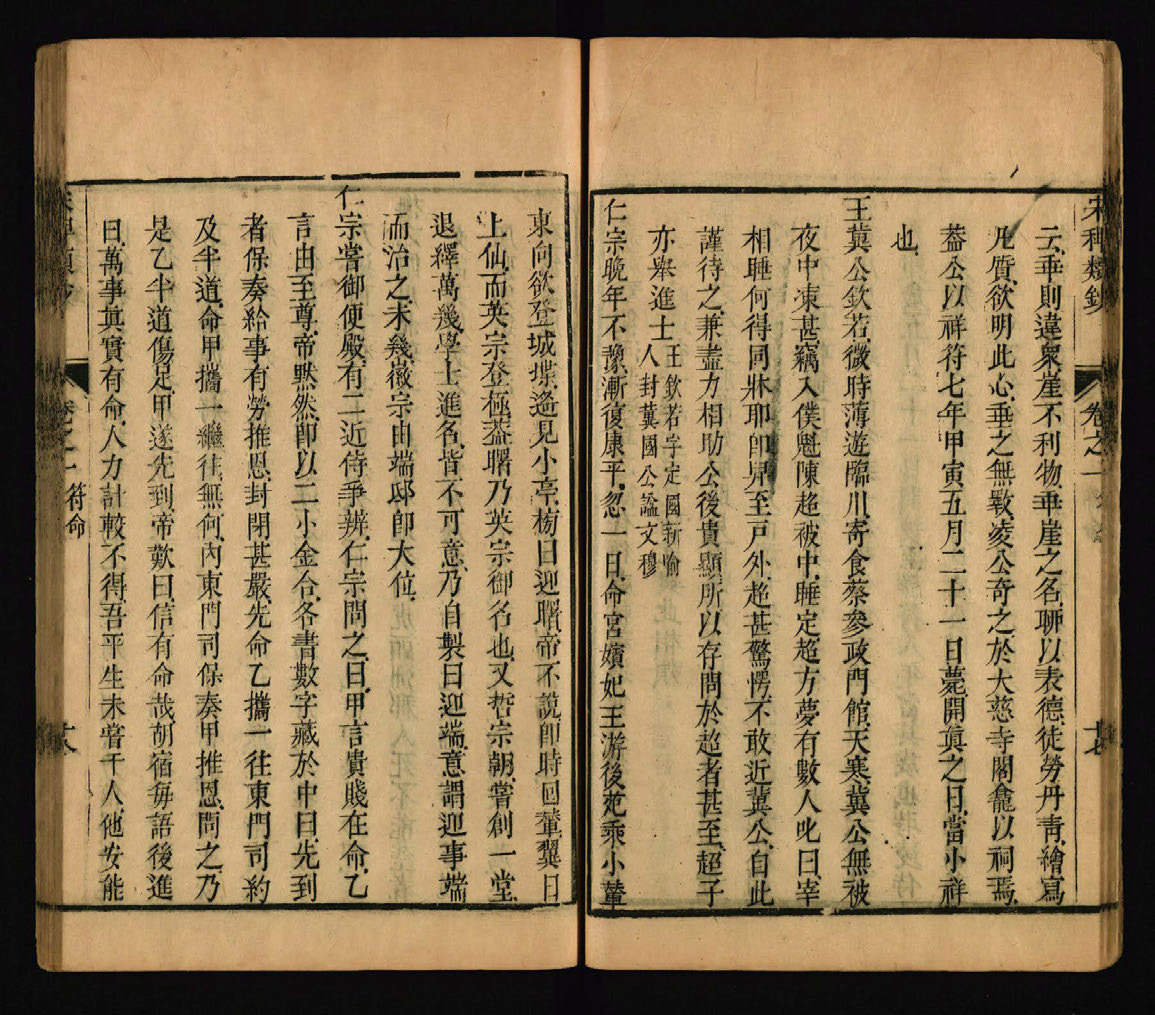 宋稗類鈔 卷之一 十七
云垂則違衆崖不利物垂崖之名聊以表德徒勞丹青繪寫
凡質欲明此心垂之無斁凌公奇之於大慈寺閣龕以祠焉
葢公以祥符七年甲寅五月二十一日薨開眞之日當小祥
也
王冀公欽若微時薄遊臨川寄食蔡參政門館天寒冀公無被
夜中凍甚竊入僕魁陳超被中睡定超方夢有數人叱曰宰
相睡何得同牀耶卽舁至戸外超甚驚愕不敢近冀公自此
謹待之兼盡力相助公後貴顯所以存問於超者甚至超子
亦舉進士
王欽若字定國新喻
人封冀國公謚文穆
仁宗晚年不豫漸復康平忽一日命宮嬪妃主游後苑乘小輦
東向欲登城堞遙見小亭榜曰迎曙帝不說卽時回輦翼日
上仙而英宗登極葢曙乃英宗御名也又哲宗朝嘗創一堂
退繹萬幾學士進名皆不可意乃自製曰迎端意謂迎事端
而治之未幾徽宗由端邸卽大位
仁宗嘗御便殿有二近侍爭辨仁宗問之曰甲言貴賤在命乙
言由至尊帝黙然卽以二小金合各書數字藏於中曰先到
者保奏給事有勞推恩封閉甚嚴先命乙攜一往東門司約
及半道命甲攜一繼往無何內東門司保奏甲推恩問之乃
是乙半道傷足甲遂先到帝歎曰信有命哉胡宿每語後進
曰萬事眞實有命人力計較不得吾平生未嘗干人他安能
卷之一 符命 十八